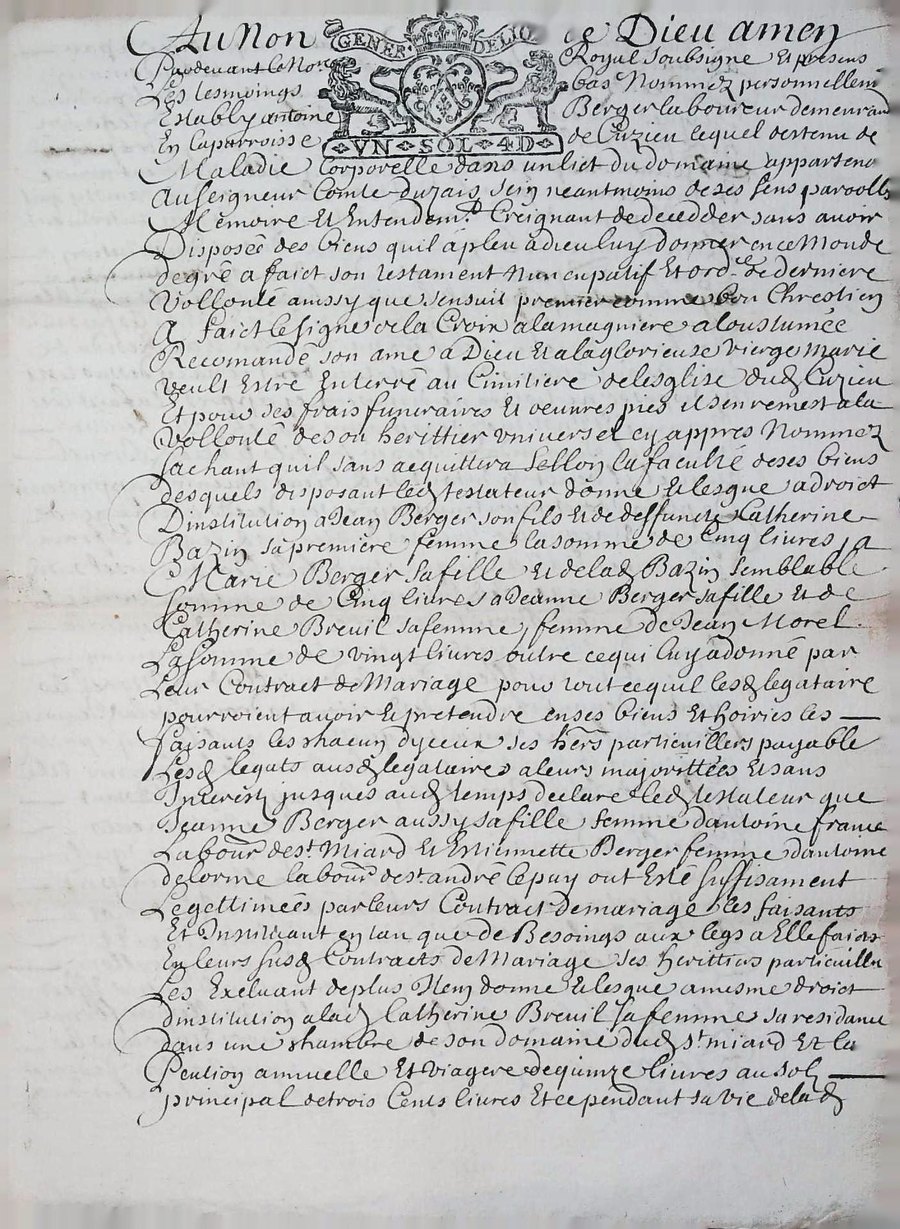 Au Non de Dieu amen
GENER DE LION
Pardevant le No.re Royal soubsigne Et presens
Les tesmoings bas Nommez personnellem.t
Estably antoine Berger laboureur demeurand
En la parroisse de Cuzieu lequel destenu de
VN SOL 4D
Maladie corporelle dans un lict du domaine appartena
Au seigneur Comte du rais sein neantmoins de ses sens parolle
Memoire Et Entendem.t Creignant de decedder sans avoir
Disposée des biens quil a pleu a dieu luy donner en ce Monde
de gré a faict son testament Nuncupatif Et ord.re de derniere
Vollonté ainssy que sensuit premier comme bon Chrestien
A faict le signe de la Croix a la magniere aloustumée
Recomandé son ame a Dieu Et a la glorieuse vierge Marie
veult Estre Enterré au Cimitiere de lesglise dud Cuzieu
Et pour ses frais funeraires Et oeuvres pies il sen remest a la
Vollonté de son herittier universel cy appres Nommez
sachant quil sans acquittera sellon la faculté de ses biens
desquels disposant led testateur donne Et lesgue a droict
Dinstitution a Jean Berger son fils Et de deffuncte Catherine
Bazin sa premiere femme la somme de Cinq livres, a
Marie Berger sa fille Et de lad Bazin semblable
somme de Cinq livres a Jeanne Berger sa fille Et de
Catherine Breuil sa femme, femme de Jean Morel
La somme de vingt livres outre ce qui luy a donné par
Leur Contract de Mariage pour tout ce quil lesd legataire
pourroient avoir Et pretendre en ses biens Et hoiries les
faisants les chacun dyceux ses hers particuillers payable
Lesd legats ausd legataires a leurs majorittées Et sans
Interest jusques aud temps declare led testateur que
Jeanne Berger aussy sa fille femme dantoine france
Labour de st Miard Et Estiennette Berger femme dantoine
delorme labour de st andré le puy ont Esté suffisament
Legettimées par leurs Contract de mariage les faisants
Et Instituant en tan que de Besoings aux legs a Elle faicts
En leurs susd Contracts de Mariage ses herittiers particuillers
Les Excluant de plus Item donne Et lesgue a mesme droict
dinstitution a lad Catherine Breuil sa femme sa residance
dans une chambre de son domaine dud st miard Et la
Pention annuelle Et viagere de quinze livres au sol
principal de trois Cents livres Et ce pendant sa vie de lad